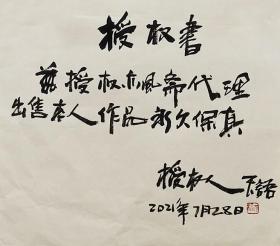 授权书
兹授权亦飒斋代理
出售本人作品永久保真
授权人
2021年7月28日